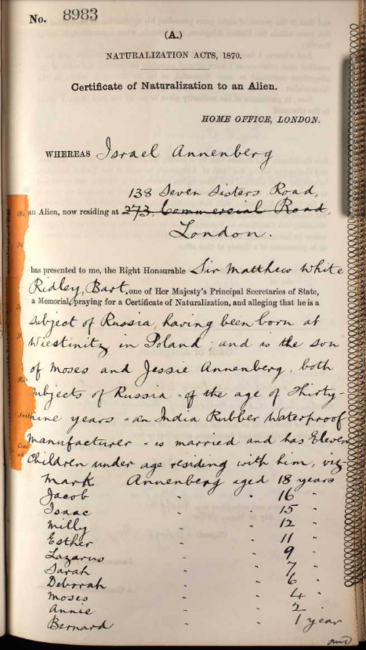 No. 8983
(A.)
NATURALIZATION ACTS, 1870.
Certificate of Naturalization to an Alien.
HOME OFFICE, LONDON.
WHEREAS Israel Annenberg
138 Seven Sisters Road,
an Alien, now residing at 273. Commercial Road,
London.
has presented to me, the Right Honourable Sir Matthew White
Ridley, Bart, one of Her Majesty's Principal Secretaries of State,
a Memorial, praying for a Certificate of Naturalization, and alleging that he is a
Subject of Russia, having been born at
Wiestinitz in Poland - and is the son
of Moses and Jessie Annenberg, both
subjects of Russia - of the age of Thirty-
nine years - an India Rubber Waterproof
Manufacturer - is married and has Eleven
Children under age residing with him, viz
Mark Annenberg aged 18 years
Jacob " " 16 "
Isaac " " 15 "
Milly " " 12 "
Esther " " 11 "
Lazarus " " 9 "
Sarah " " 7 "
Deborah " " 6 "
Moses " " 4 "
Annie " " 2 "
Bernard " " 1 year
and